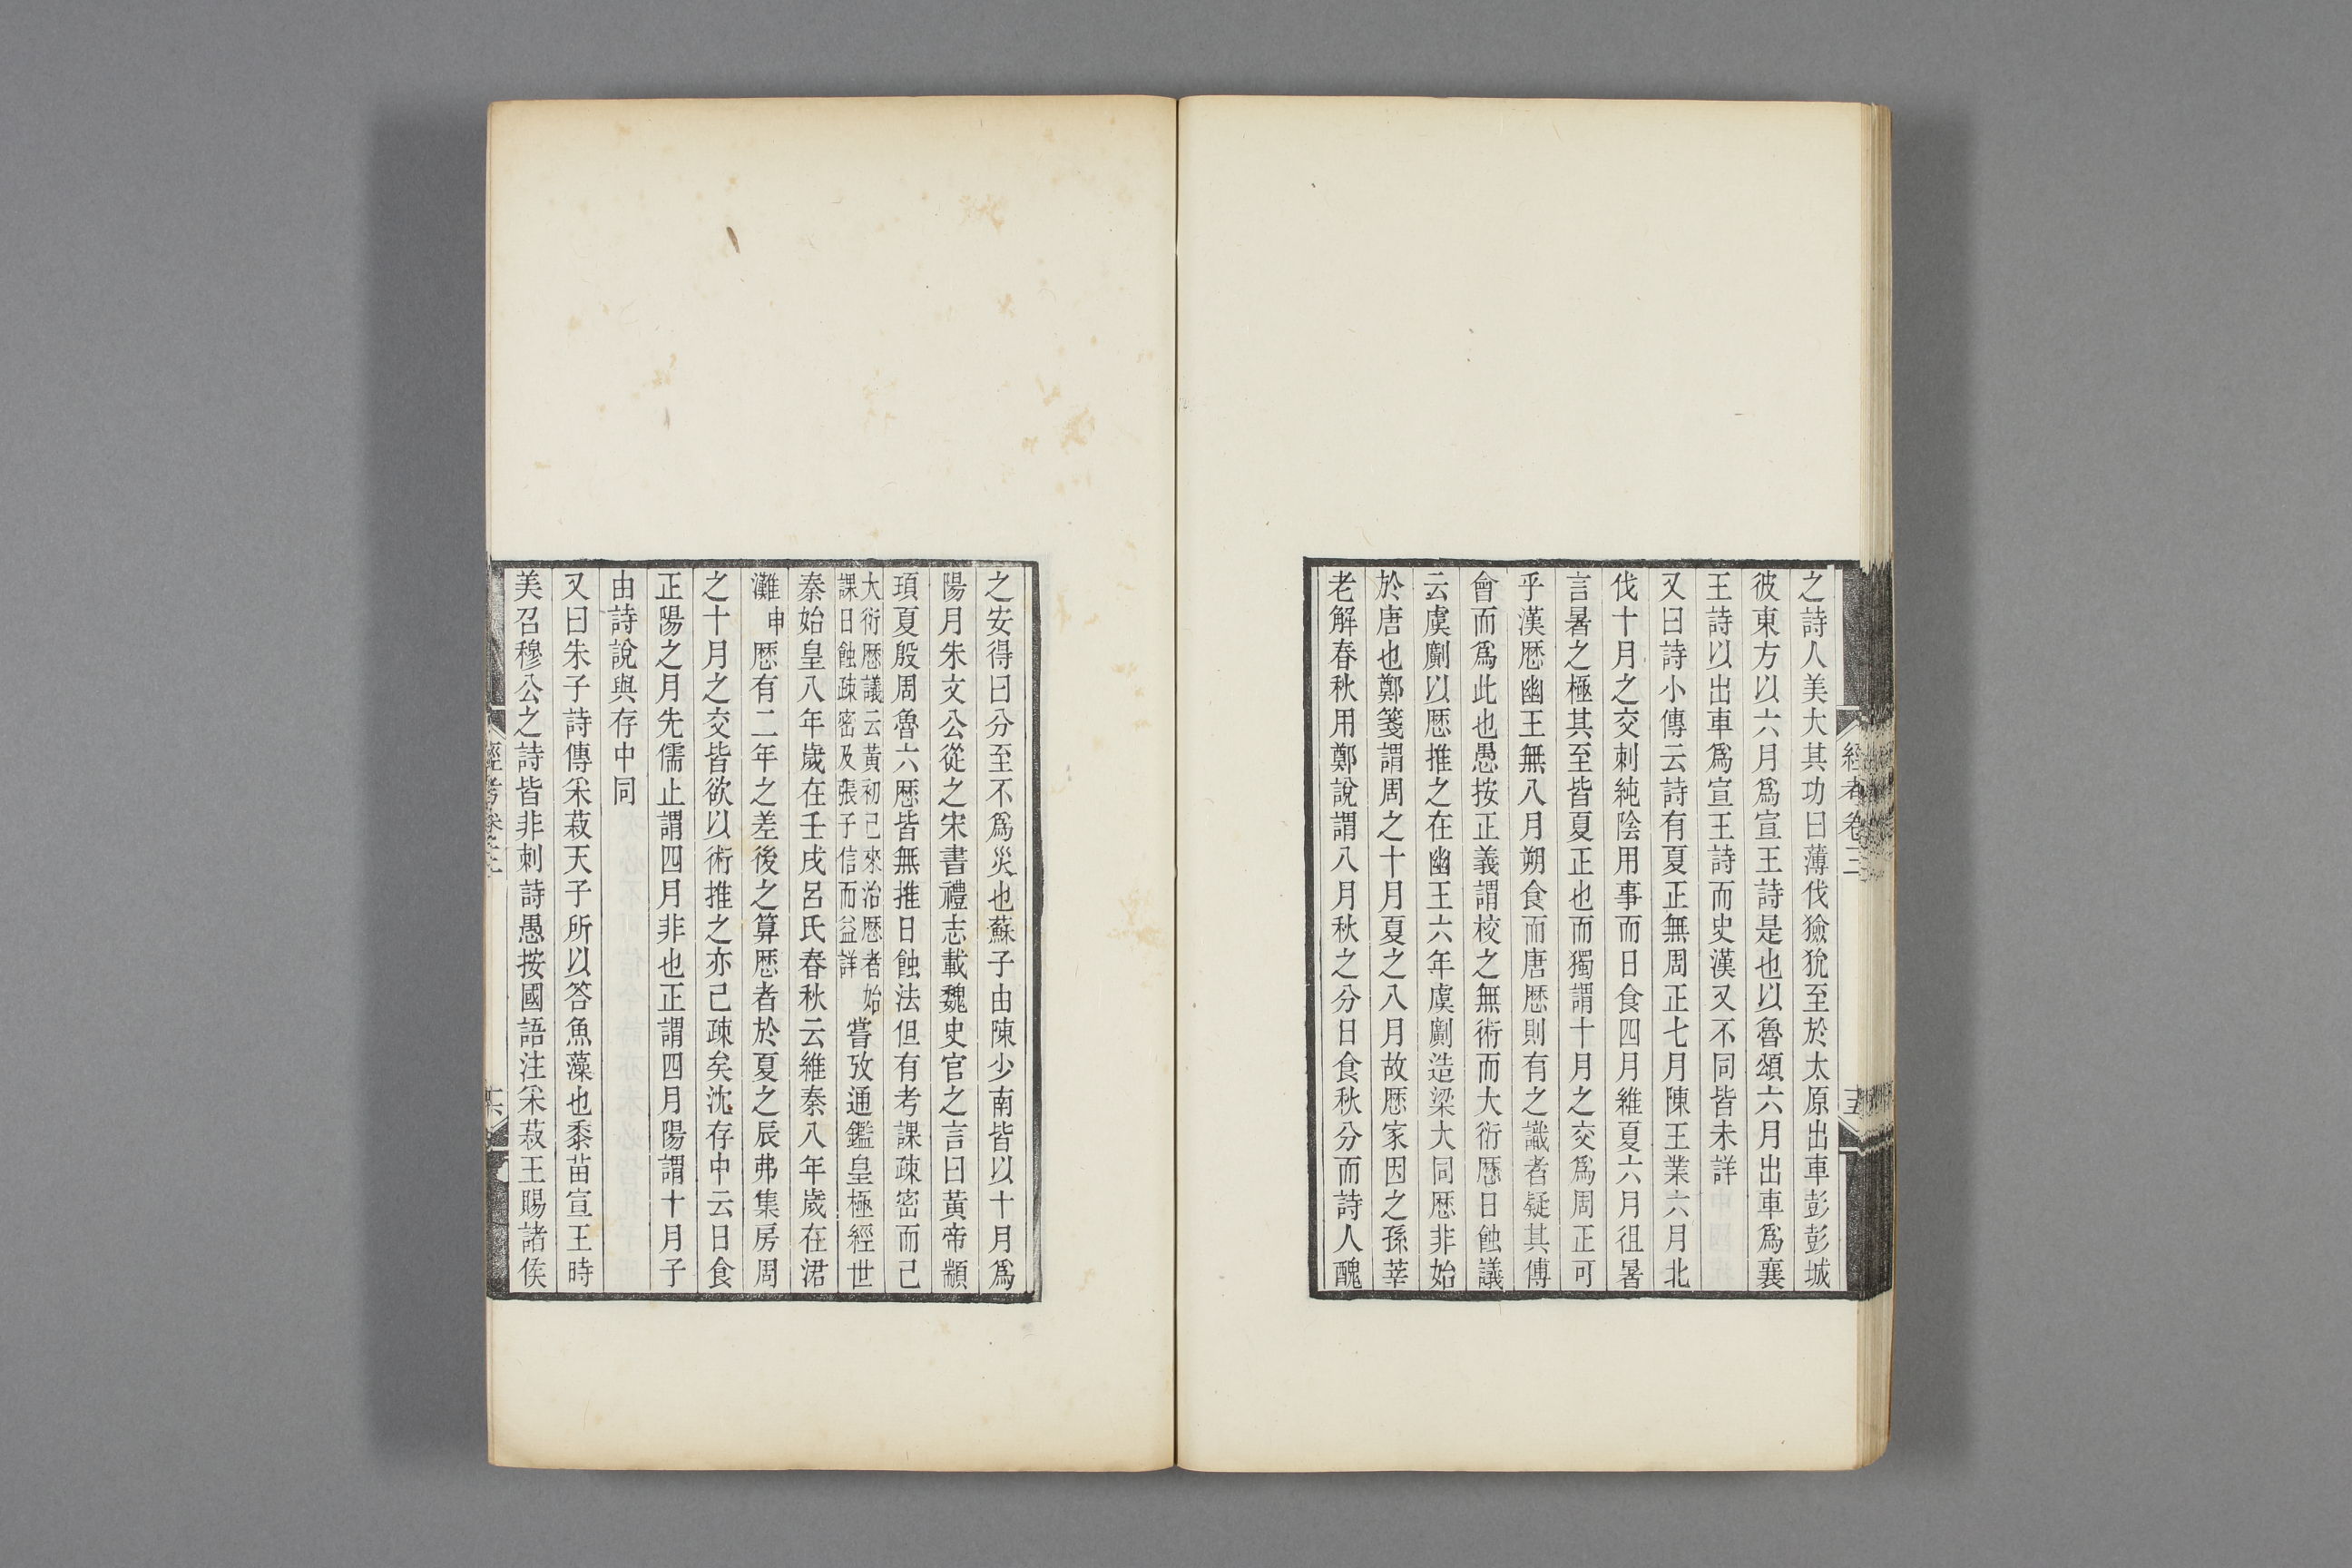 之詩人美大其功曰薄伐獫狁至於太原出車彭彭城
彼東方以六月爲宣王詩是也以魯頌六月出車爲襄
王詩以出車爲宣王詩而史漢又不同皆未詳
又曰詩小傳云詩有夏正無周正七月陳王業六月北
伐十月之交刺純陰用事而日食四月維夏六月徂暑
言暑之極其至皆夏正也而獨謂十月之交爲周正可
乎漢厯幽王無八月朔食而唐厯則有之識者疑其傅
會而爲此也愚按正義謂校之無術而大衍厯日蝕議
云虞𠠎以厯推之在幽王六年虞𠠎造梁大同厯非始
於唐也鄭箋謂周之十月夏之八月故厯家因之孫莘
老解春秋用鄭說謂八月秋之分日食秋分而詩人醜
經考卷三
十五
之安得曰分至不爲災也蘇子由陳少南皆以十月爲
陽月朱文公從之宋書禮志載魏史官之言曰黃帝顓
頊夏殷周魯六厯皆無推日蝕法但有考課疎密而已
大衍厯議云黃初已來治厯者始
課日蝕疎密及張子信而益詳
嘗攷通鑑皇極經世
秦始皇八年歲在壬戌呂氏春秋云維秦八年歲在涒
灘申厯有二年之差後之算厯者於夏之辰弗集房周
之十月之交皆欲以術推之亦已疎矣沈存中云日食
正陽之月先儒止謂四月非也正謂四月陽謂十月子
由詩說與存中同
又曰朱子詩傳采菽天子所以答魚藻也黍苗宣王時
美召穆公之詩皆非刺詩愚按國語注采菽王賜諸侯